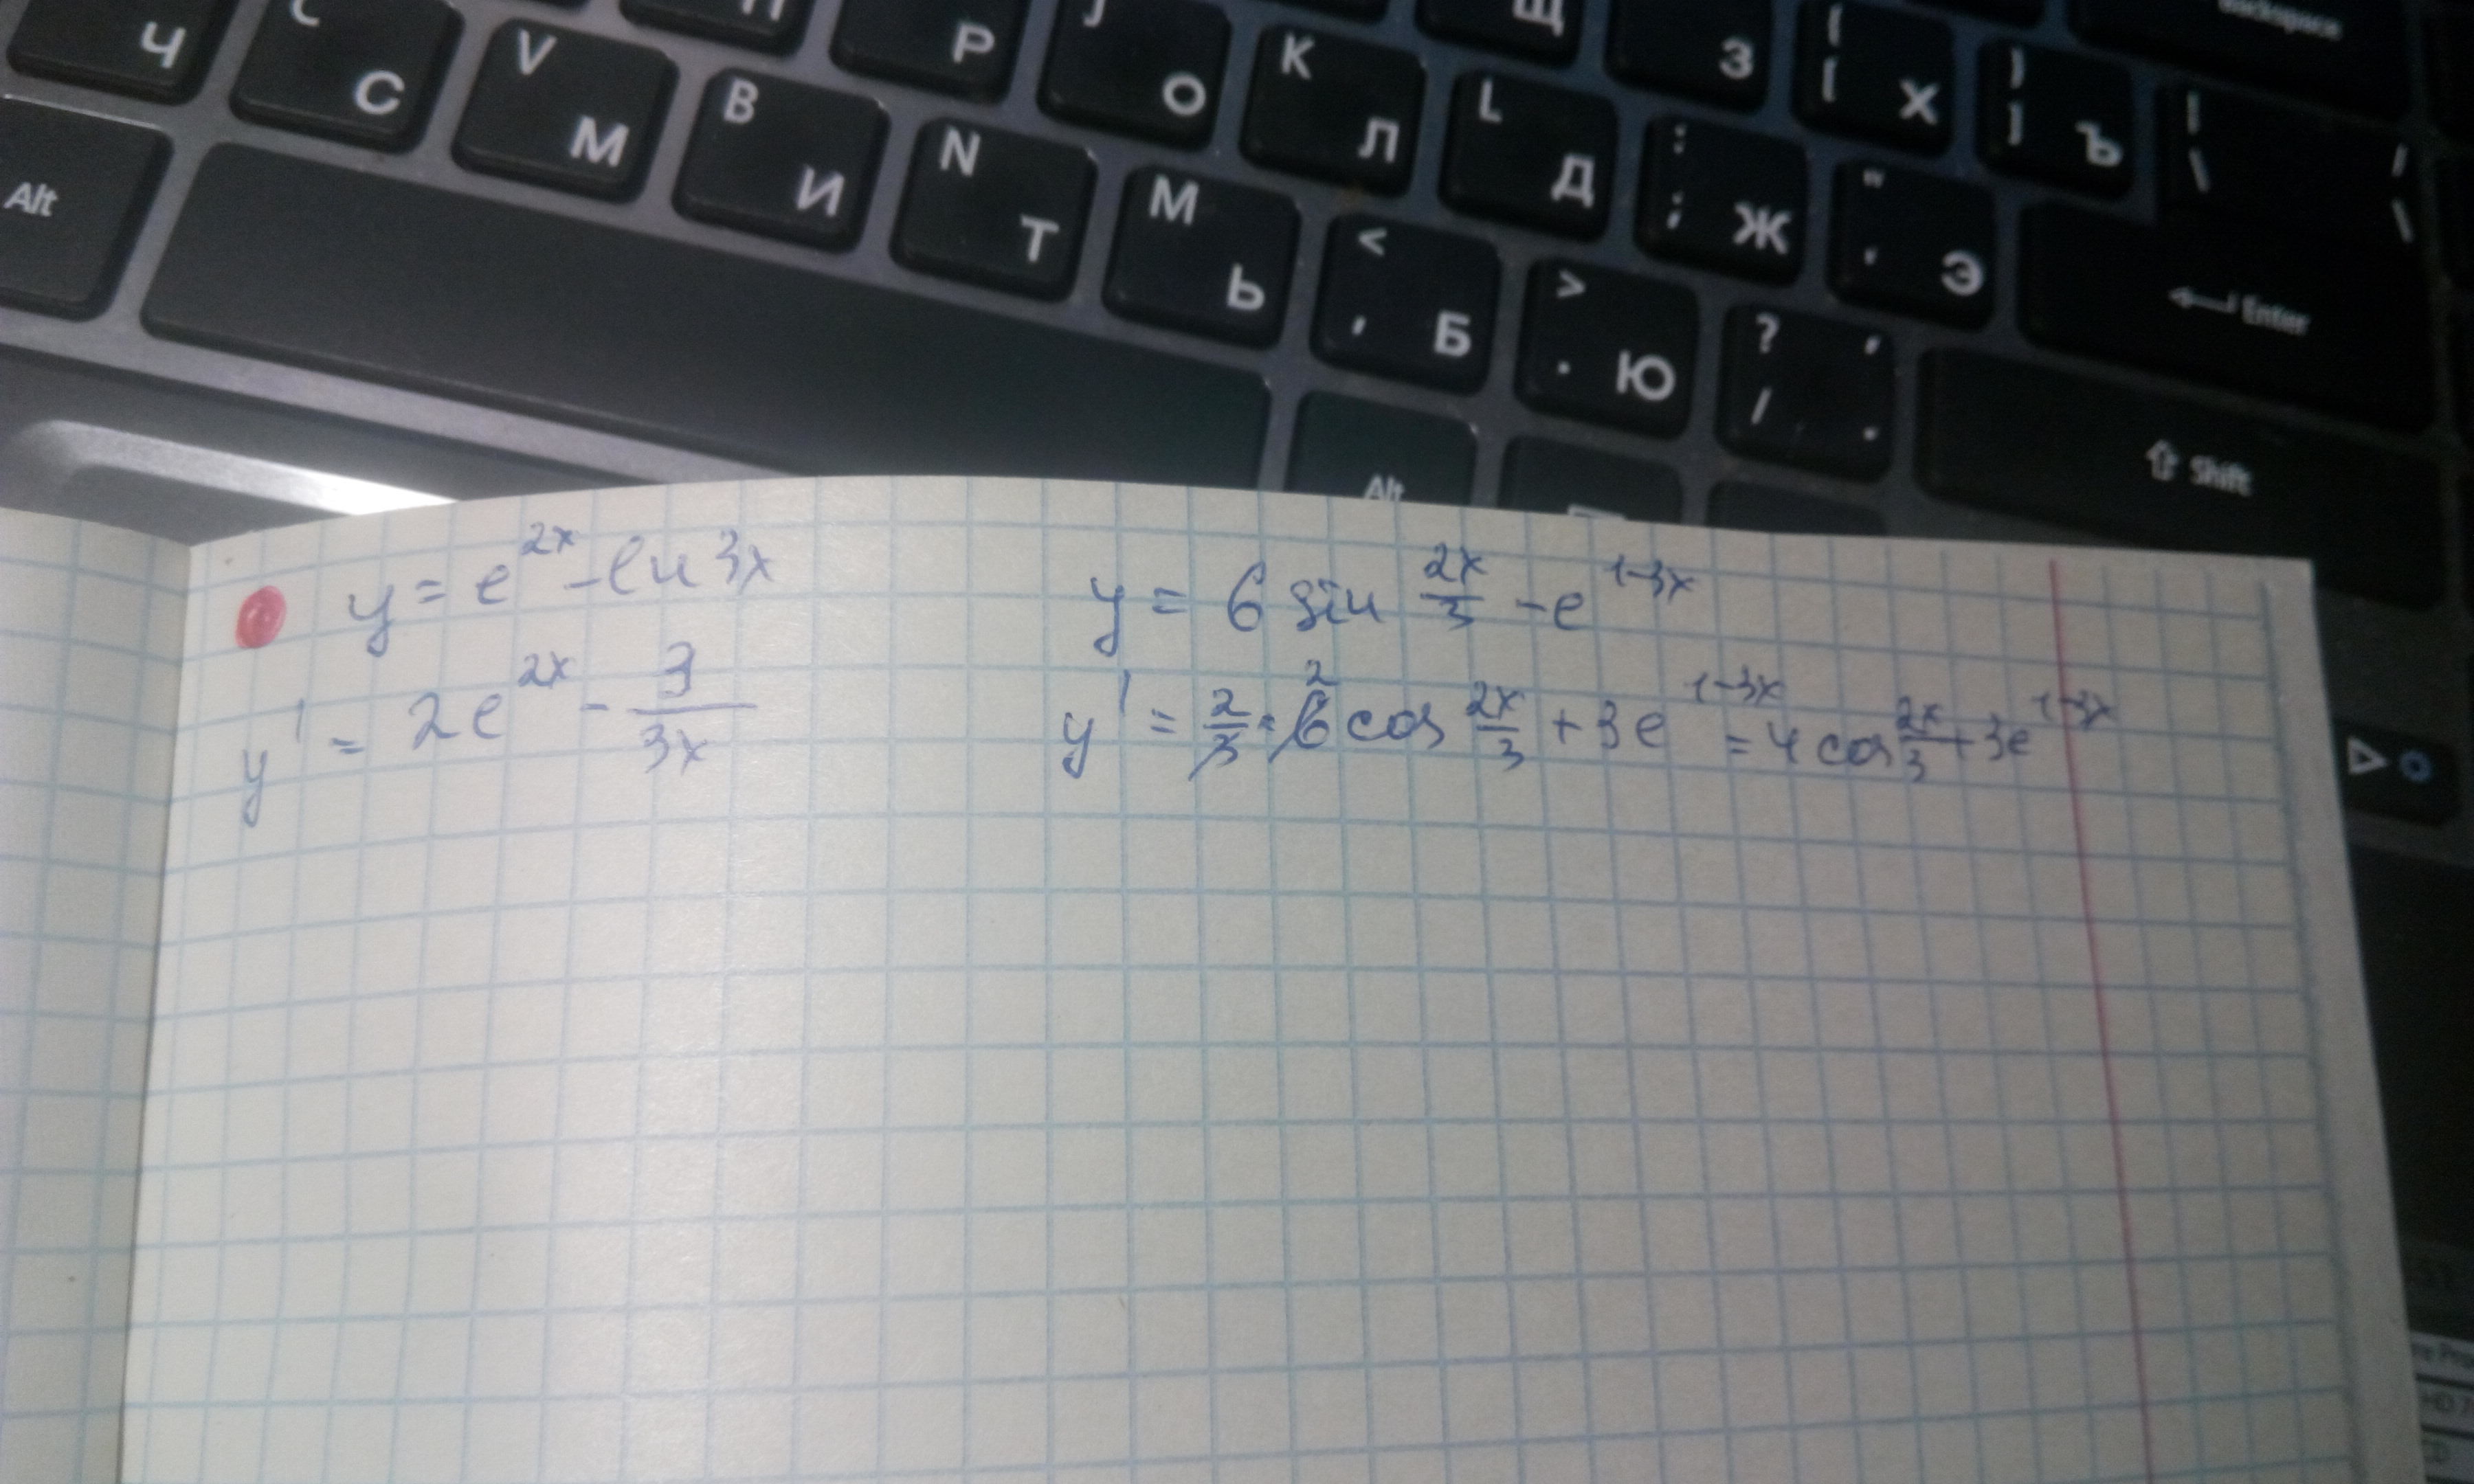 Backspace
П
Щ
Ч
С
V М
B И
N Т
M Ь
Р
J О
K Л
L Д
З
{ [ Х
} ] Ъ
| \ / \
: ; Ж
" ' Э
Enter
< , Б
> . Ю
? / , .
Shift
Alt
Alt
y = e^{2x} - ln 3x
y' = 2e^{2x} - \frac{3}{3x}
y = 6 sin \frac{2x}{3} - e^{1-3x}
y' = \frac{2}{3} · 6 2 cos \frac{2x}{3} + 3e^{1-3x} = 4 cos \frac{2x}{3} + 3e^{1-3x}